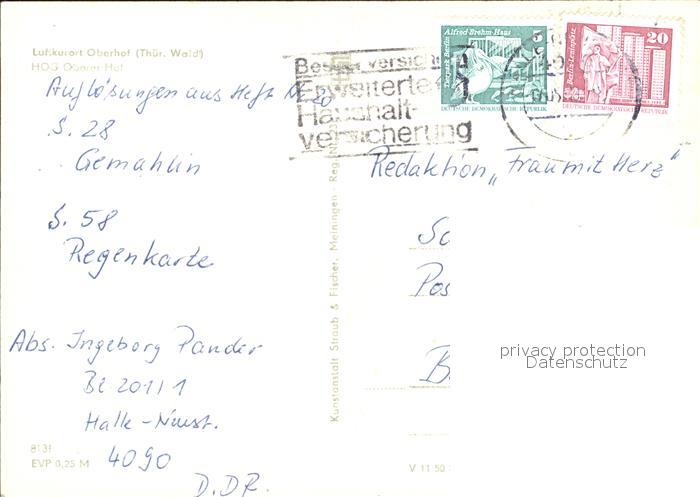 Luftkurort Oberhof (Thür. Wald)
HOG Oberer Hof
Auflösungen aus Heft Nr. 20
S. 28
Gemahlin
S. 58
Regenkarte
Abs. Ingeborg Pander
Bl 201/1
Halle-Neust.
4090
D.D.R.
8131
EVP 0,25 M
V 11 50
Kunstanstalt Straub & Fischer, Meiningen - Reg
Erweiterte
Haushalt-
versicherung
Alfred-Brehm-Haus
Tierpark Berlin
5
DEUTSCHE DEMOKRATISCHE REPUBLIK
20
Berlin-Leninplatz
DEUTSCHE DEMOKRATISCHE REPUBLIK
Redaktion „Frau mit Herz"
Sc
Pos
B
privacy protection
Datenschutz